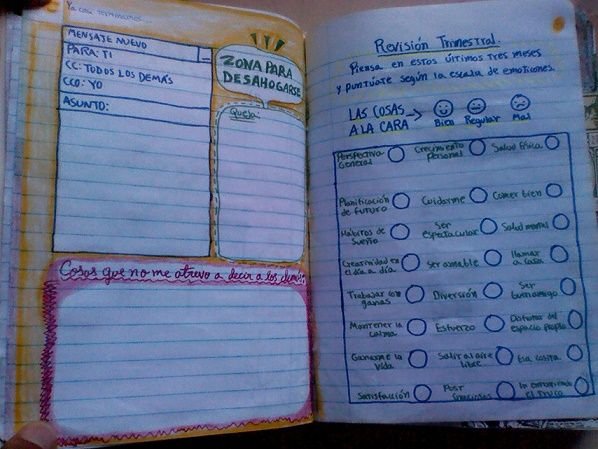 Ya casi terminamos...
MENSAJE NUEVO
PARA: TI
CC: TODOS LOS DEMÁS
CCO: YO
ASUNTO:
ZONA PARA
DESAHOGARSE
Queja:
Cosas que no me atrevo a decir a los demás
Revisión Trimestral.
Piensa en estos últimos tres meses
y puntúate según la escala de emoticones.
LAS COSAS
A LA CARA →
Bien Regular Mal
Perspectiva
General
Crecimiento
Personal
Salud física
Planificación
de futuro
Cuidarme
Comer bien
Hábitos de
Sueño
Ser
espectacular
Salud mental
Creatividad en
el día a día
Ser amable
llamar
a casa
Trabajar con
ganas
Diversión
Ser
buen amigo
Mantener la
calma
Esfuerzo
Disfrutar del
espacio propio
Ganarme la
vida
Salir al aire
libre
Esa cosita
Satisfacción
Post
Graciosos
el truco